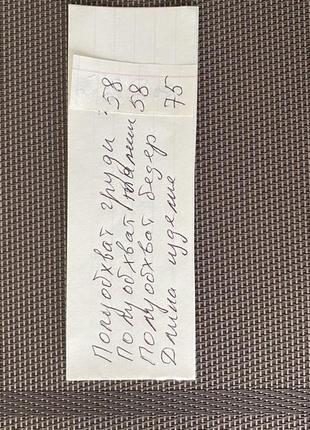 Полуобхват груди 58
Полуобхват талии 58
Полуобхват бедер
Длина изделие 75